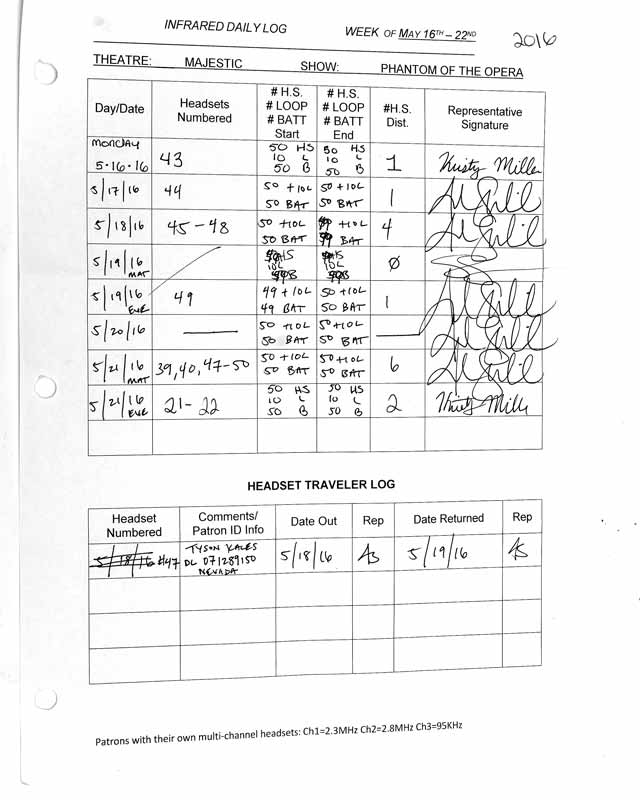 INFRARED DAILY LOG WEEK OF MAY 16TH – 22ND 2016
THEATRE: MAJESTIC SHOW: PHANTOM OF THE OPERA
Day/Date Headsets Numbered # H.S. # LOOP # BATT Start # H.S. # LOOP # BATT End #H.S. Dist. Representative Signature
MONDAY 5·16·16 43 50 HS 10 L 50 B 50 HS 10 L 50 B 1 Kristy Miller
5/17/16 44 50 +10L 50 BAT 50 +10L 50 BAT 1
5/18/16 45-48 50 +10L 50 BAT +10L BAT 4
5/19/16 MAT HS 10L B HS 10L B Ø
5/19/16 EVE 49 49 +10L 49 BAT 50 +10L 50 BAT 1
5/20/16 — 50 +10L 50 BAT 50 +10L 50 BAT —
5/21/16 MAT 39, 40, 47-50 50 +10L 50 BAT 50 +10L 50 BAT 6
5/21/16 EVE 21-22 50 HS 10 L 50 B 50 HS 10 L 50 B 2 Kristy Miller
HEADSET TRAVELER LOG
Headset Numbered Comments/ Patron ID Info Date Out Rep Date Returned Rep
5/18/16 #47 TYSON KALES DL 071289150 NEVADA 5/18/16 AS 5/19/16 AS
Patrons with their own multi-channel headsets: Ch1=2.3MHz Ch2=2.8MHz Ch3=95KHz